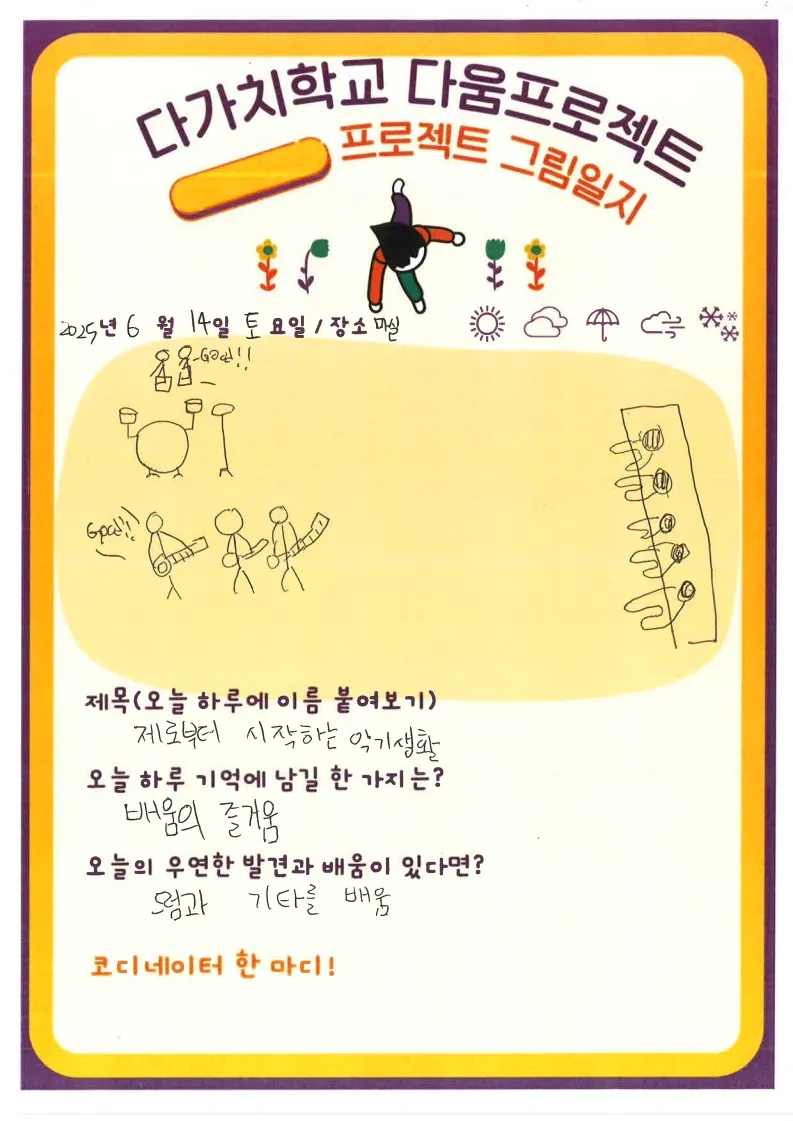 다가치학교 다움프로젝트
프로젝트 그림일지
2025년 6월 14일 토요일 / 장소 마실
Good!!
Good!!
제목(오늘 하루에 이름 붙여보기)
제로부터 시작하는 악기생활
오늘 하루 기억에 남길 한 가지는?
배움의 즐거움
오늘의 우연한 발견과 배움이 있다면?
드럼과 기타를 배움
코디네이터 한 마디!